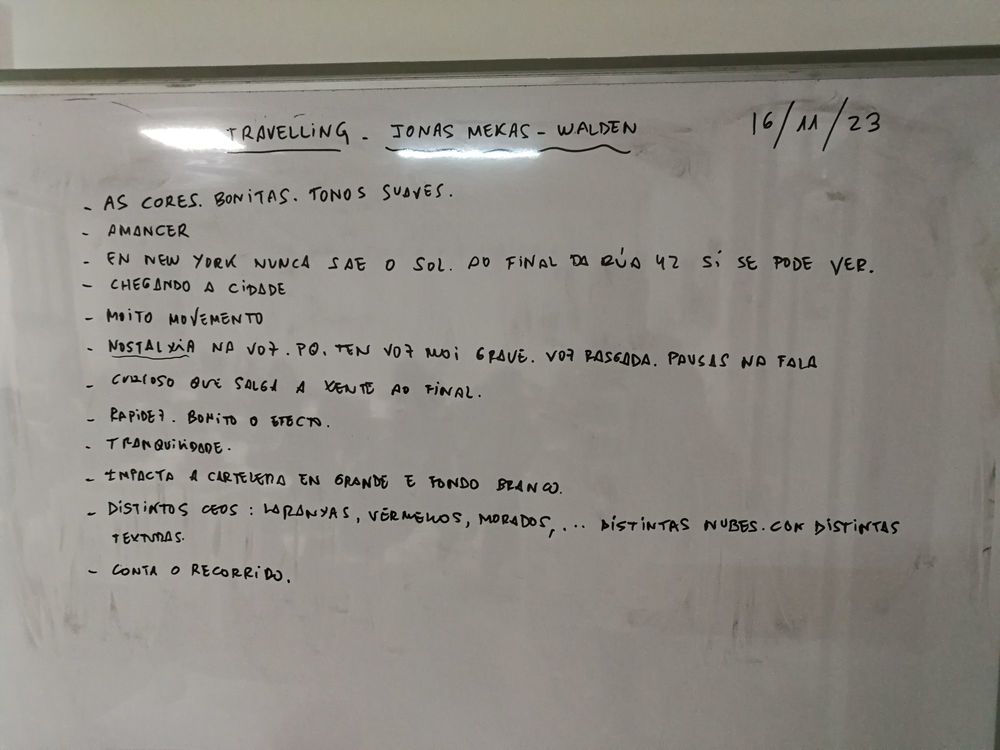 TRAVELLING - JONAS MEKAS - WALDEN 16/11/23
- AS CORES. BONITAS. TONOS SUAVES.
- AMANCER
- EN NEW YORK NUNCA SAE O SOL. AO FINAL DA RÚA 42 SÍ SE PODE VER.
- CHEGANDO A CIDADE
- MOITO MOVEMENTO
- NOSTALXIA NA VOZ. PQ. TEN VOZ MOI GRAVE. VOZ RASGADA. PAUSAS NA FALA
- CURIOSO QUE SALGA A XENTE AO FINAL.
- RAPIDEZ. BONITO O EFECTO.
- TRANQUILIDADE.
- IMPACTA A CARTELERIA EN GRANDE E FONDO BRANCO.
- DISTINTOS CEOS: LARANXAS, VERMELLOS, MORADOS,... DISTINTAS NUBES. CON DISTINTAS
TEXTURAS.
- CONTA O RECORRIDO.